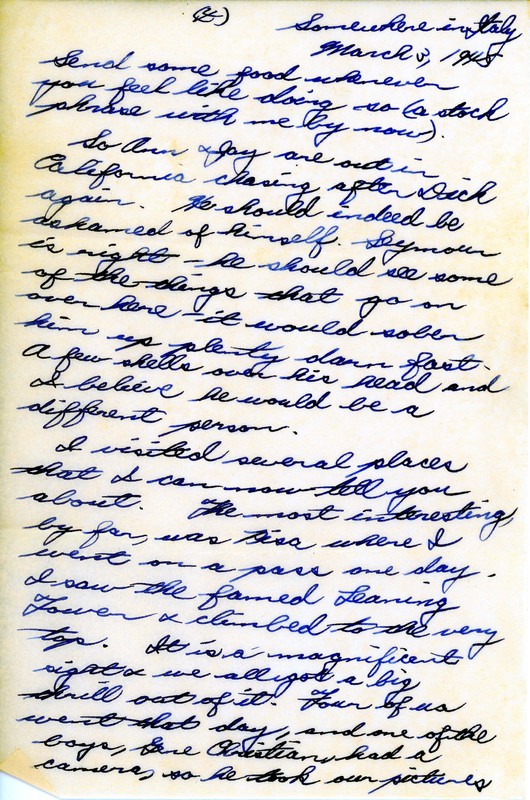 Somewhere in Italy
March 3, 1945
Send some food whenever
you feel like doing so (a stock
phrase with me by now).
So Ann & Jay are out in
California chasing after Dick
again. He should indeed be
ashamed of himself. Seymour
is right - he should see some
of the things that go on
over here - it would sober
him up plenty darn fast.
A few shells over his head and
I believe he would be a
different person.
I visited several places
that I can now tell you
about. The most interesting,
by far, was Pisa where I
went on a pass one day.
I saw the famed Leaning
Tower & climbed to the very
top. It is a magnificent
sight & we all got a big
thrill out of it. Four of us
went that day, and one of the
boys, Gene Christian, had a
camera, so he took our pictures